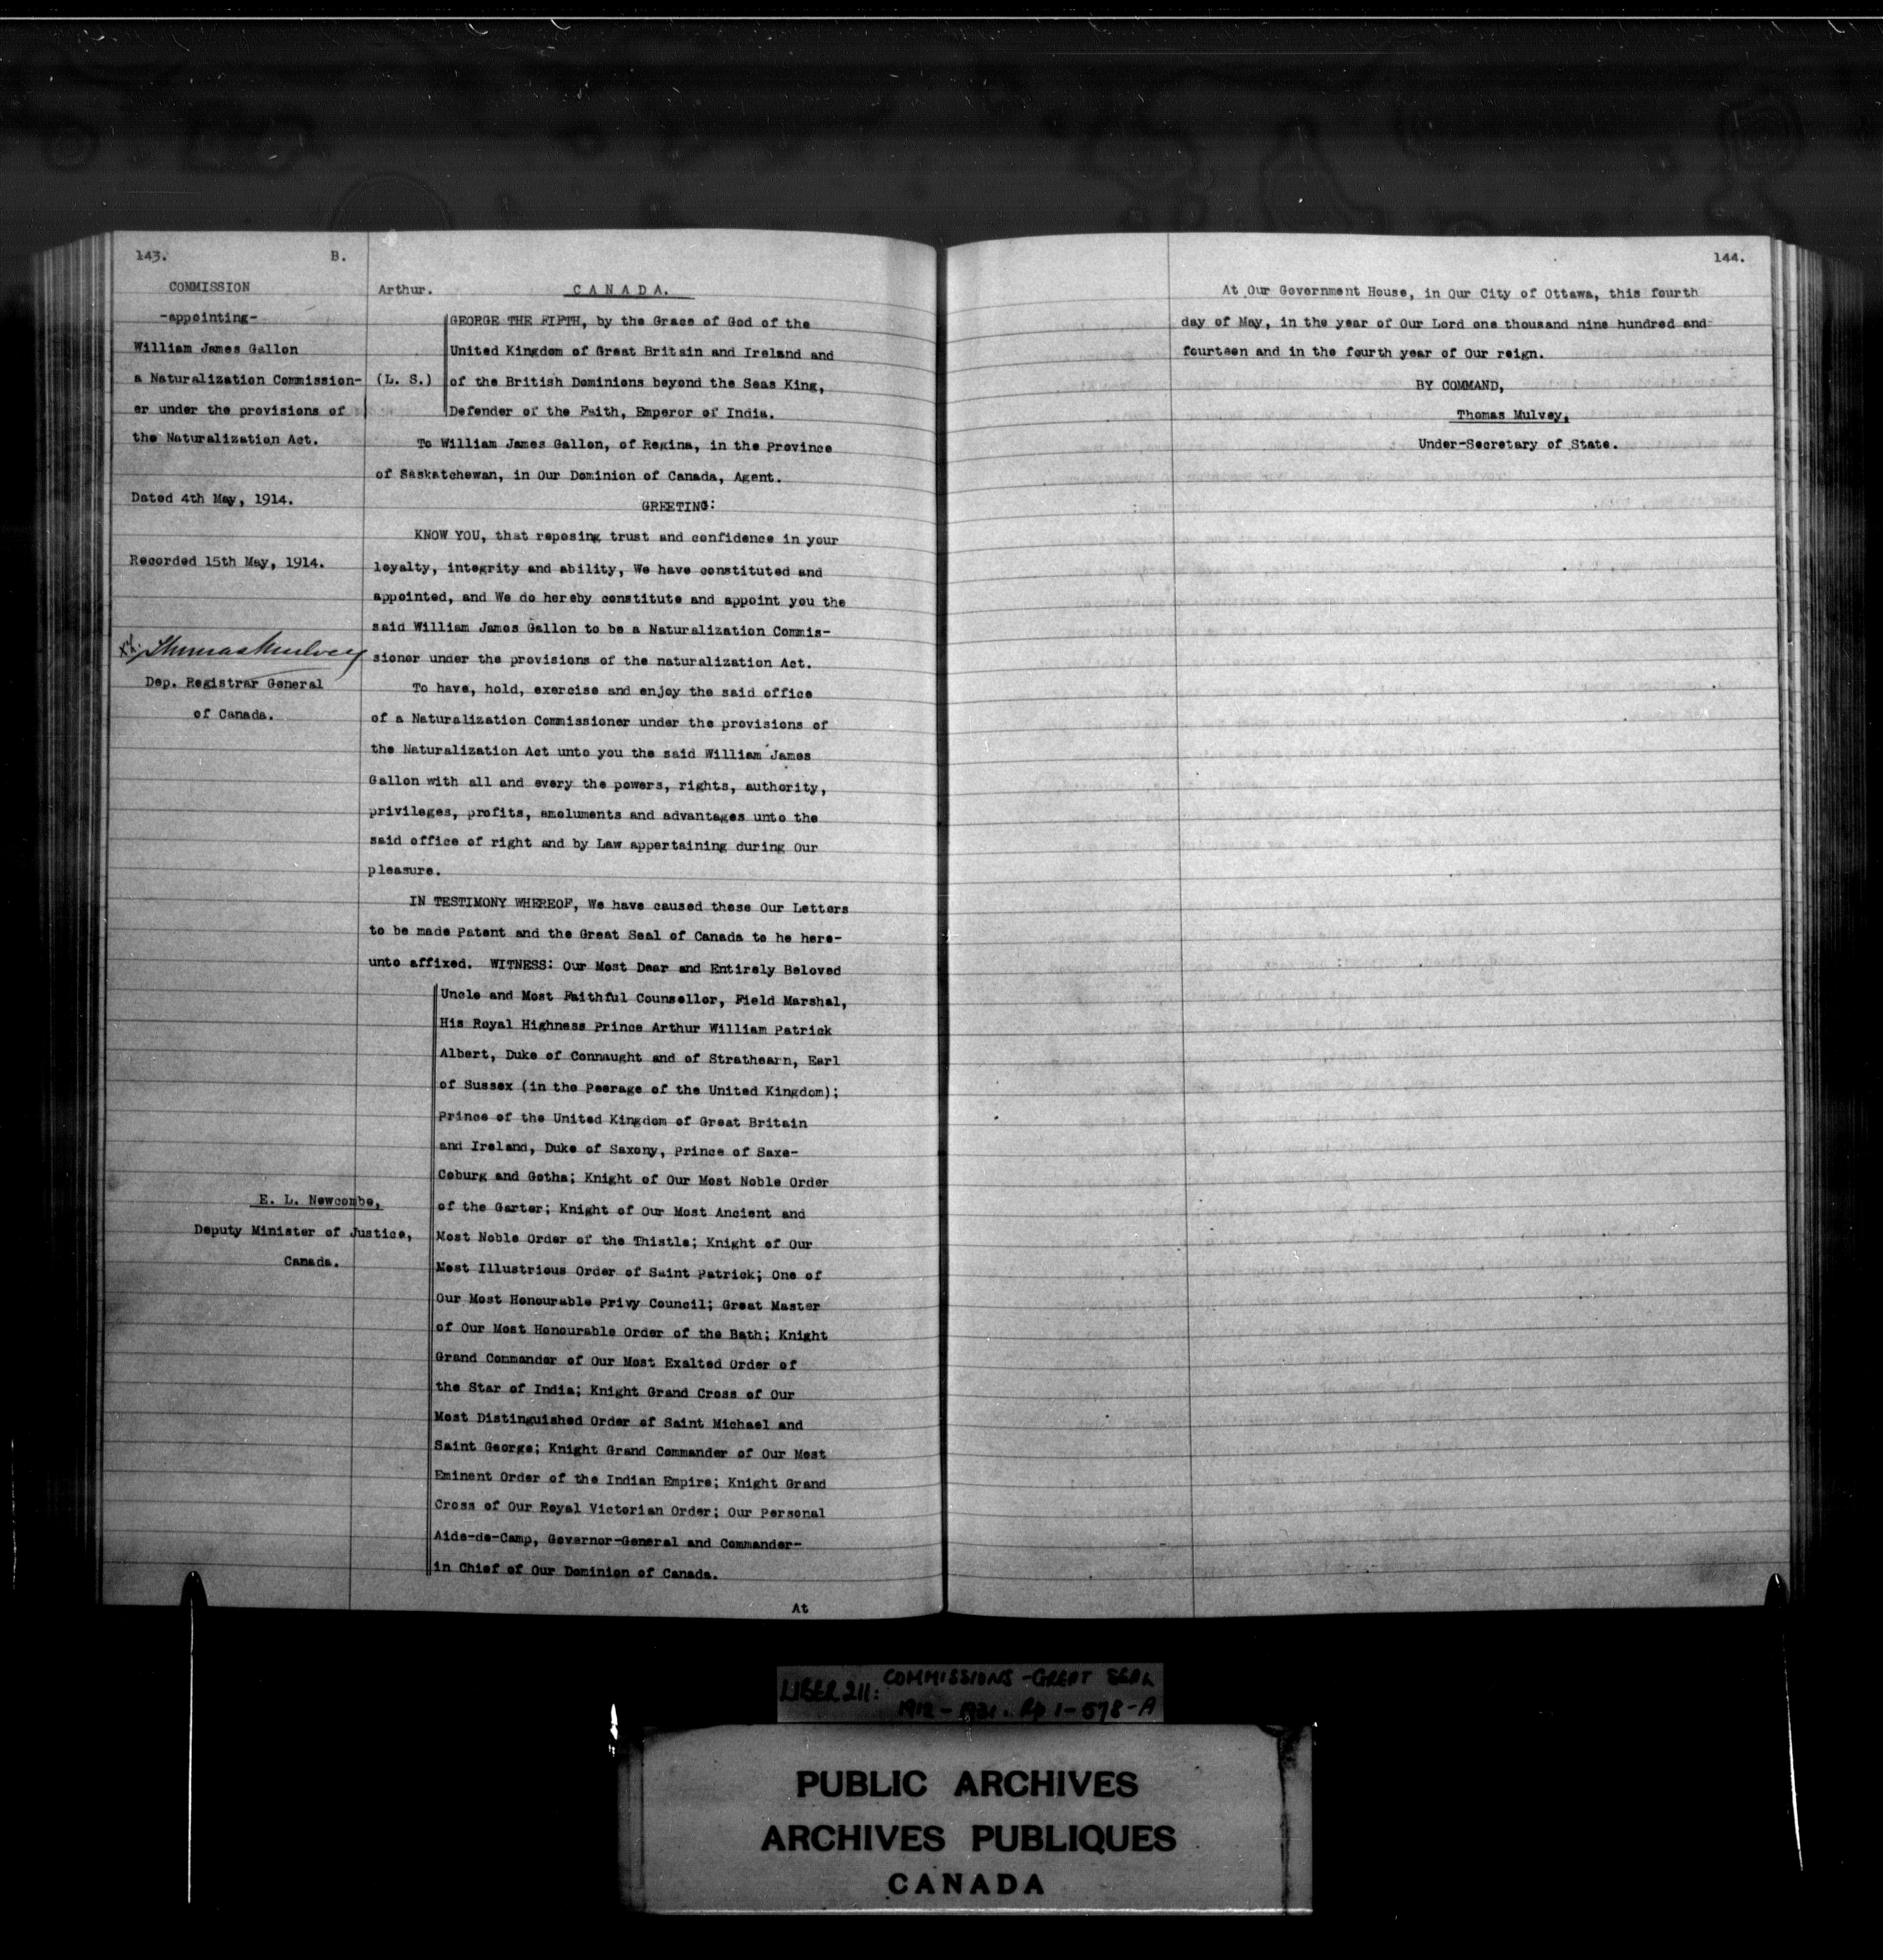 143. B.
COMMISSION
-appointing-
William James Gallon
a Naturalization Commission-
er under the provisions of
the Naturalization Act.
Dated 4th May, 1914.
Recorded 15th May, 1914.
Thomas Mulvey
Dep. Registrar General
of Canada.
E. L. Newcombe,
Deputy Minister of Justice,
Canada.
Arthur. CANADA.
(L. S.)
GEORGE THE FIFTH, by the Grace of God of the
United Kingdom of Great Britain and Ireland and
of the British Dominions beyond the Seas King,
Defender of the Faith, Emperor of India.
To William James Gallon, of Regina, in the Province
of Saskatchewan, in Our Dominion of Canada, Agent.
GREETING:
KNOW YOU, that reposing trust and confidence in your
loyalty, integrity and ability, We have constituted and
appointed, and We do hereby constitute and appoint you the
said William James Gallon to be a Naturalization Commis-
sioner under the provisions of the naturalization Act.
To have, hold, exercise and enjoy the said office
of a Naturalization Commissioner under the provisions of
the Naturalization Act unto you the said William James
Gallon with all and every the powers, rights, authority,
privileges, profits, emoluments and advantages unto the
said office of right and by Law appertaining during Our
pleasure.
IN TESTIMONY WHEREOF, We have caused these Our Letters
to be made Patent and the Great Seal of Canada to he here-
unto affixed. WITNESS: Our Most Dear and Entirely Beloved
Uncle and Most Faithful Counsellor, Field Marshal,
His Royal Highness Prince Arthur William Patrick
Albert, Duke of Connaught and of Strathearn, Earl
of Sussex (in the Peerage of the United Kingdom);
Prince of the United Kingdom of Great Britain
and Ireland, Duke of Saxony, Prince of Saxe-
Coburg and Gotha; Knight of Our Most Noble Order
of the Garter; Knight of Our Most Ancient and
Most Noble Order of the Thistle; Knight of Our
Most Illustrious Order of Saint Patrick; One of
Our Most Honourable Privy Council; Great Master
of Our Most Honourable Order of the Bath; Knight
Grand Commander of Our Most Exalted Order of
the Star of India; Knight Grand Cross of Our
Most Distinguished Order of Saint Michael and
Saint George; Knight Grand Commander of Our Most
Eminent Order of the Indian Empire; Knight Grand
Cross of Our Royal Victorian Order; Our Personal
Aide-de-Camp, Governor-General and Commander-
in Chief of Our Dominion of Canada.
At
144.
At Our Government House, in Our City of Ottawa, this fourth
day of May, in the year of Our Lord one thousand nine hundred and
fourteen and in the fourth year of Our reign.
BY COMMAND,
Thomas Mulvey,
Under-Secretary of State.
LIBER 211: COMMISSIONS - GREAT SEAL
1912 - 1931. Pp 1-578-A
PUBLIC ARCHIVES
ARCHIVES PUBLIQUES
CANADA